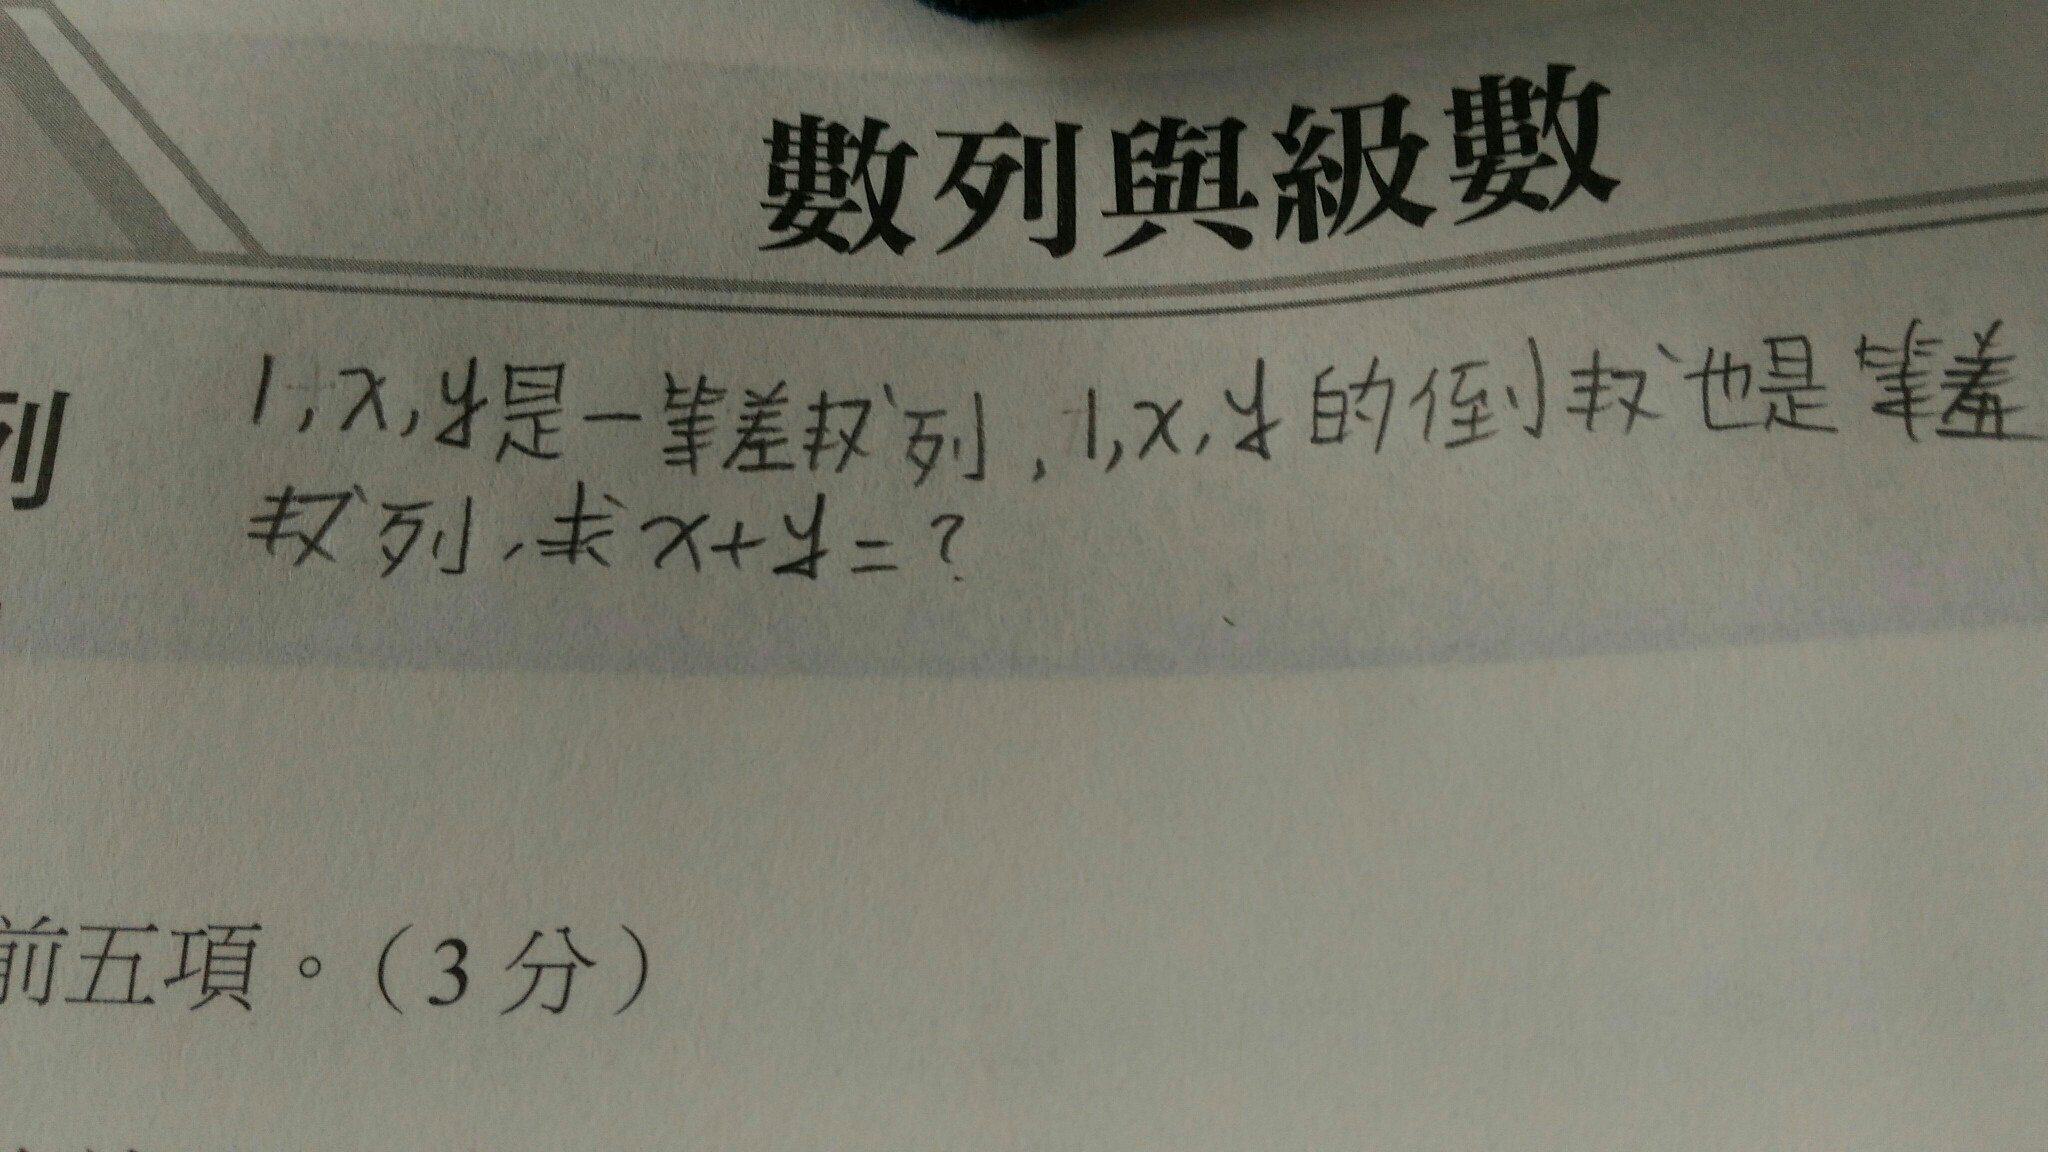 數列與級數
列
1,x,y是一等差数列,1,x,y的倒数也是等差
数列,求x+y=?
前五項。(3分)